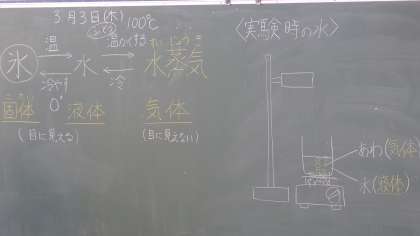 3月3日(木)
〈実験時の水〉
100℃
温 温かくする
氷 水 水蒸気
すいじょうき
冷やす 冷
0°
固体 液体 気体
(目に見える) (目に見えない)
あわ(気体)
水(液体)